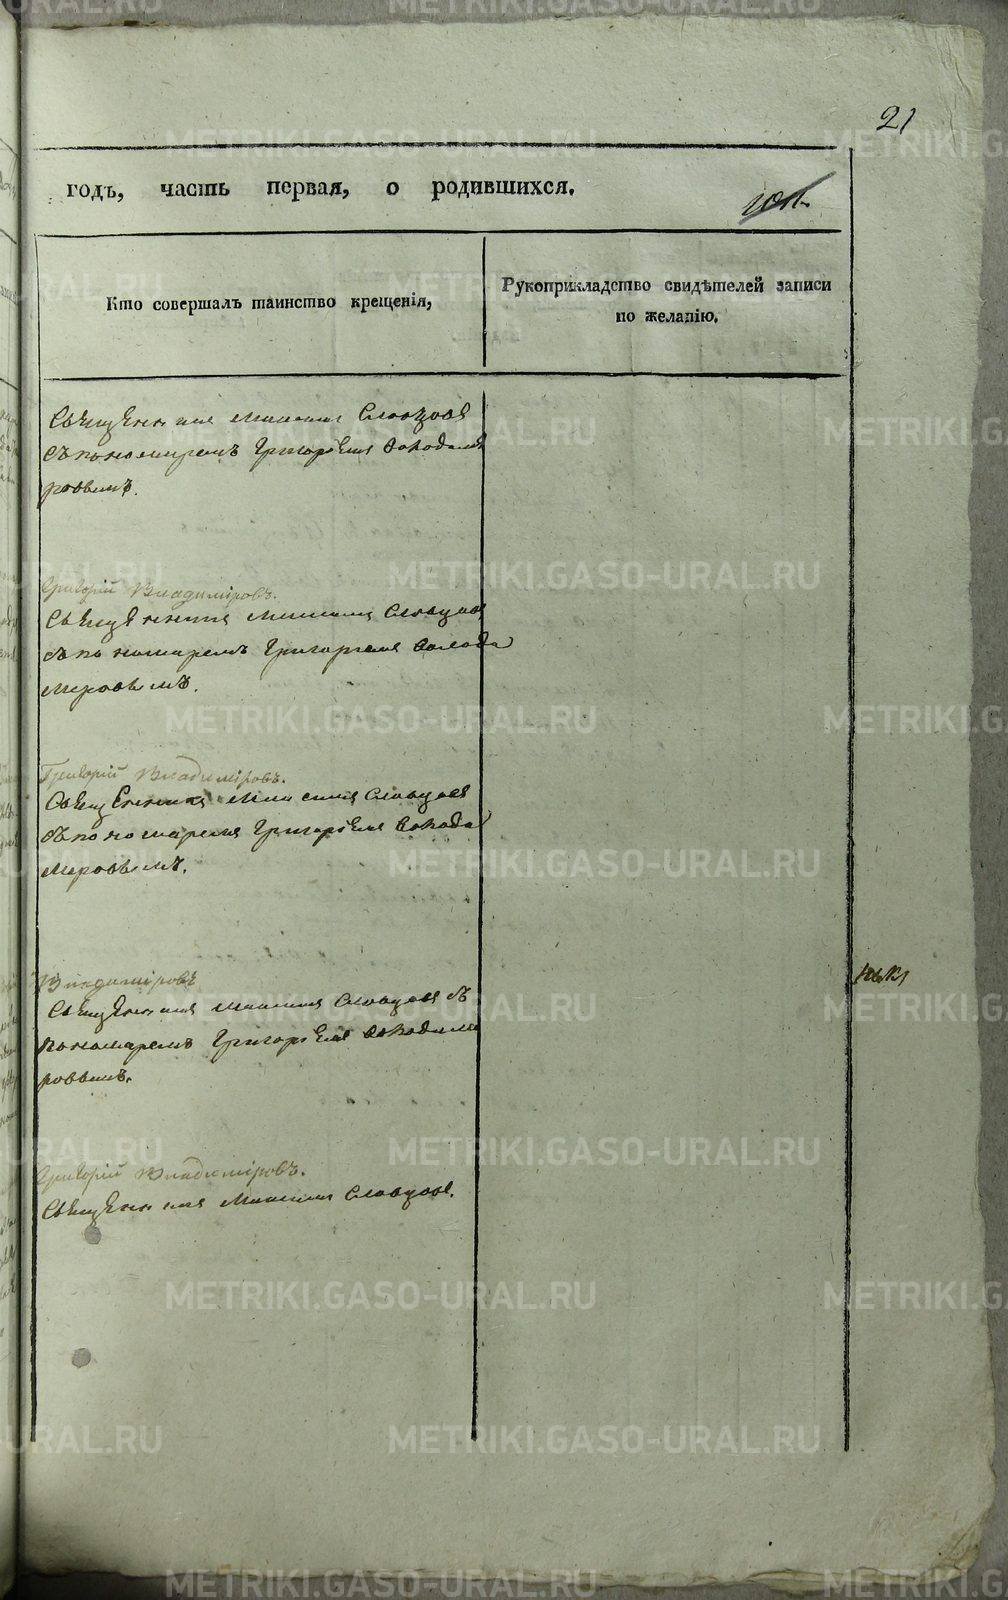 21
годъ, часть первая, о родившихся.
Кто совершалъ таинство крещенія,
Рукоприкладство свидѣтелей записи
по желанію.
Священникъ Словцовъ
съ пономаремъ Григоріемъ
ровымъ.
Григорій Владиміровъ.
Священникъ Словцовъ
съ пономаремъ Григоріемъ Волода
меровымъ.
Григорій Владиміровъ.
Священникъ Словцовъ
съ пономаремъ Григоріемъ Волода
меровымъ.
Владиміровъ
Священникъ Словцовъ съ
пономаремъ Григоріемъ
ровымъ.
Григорій Владиміровъ.
Священникъ Словцовъ.
METRIKI.GASO-URAL.RU